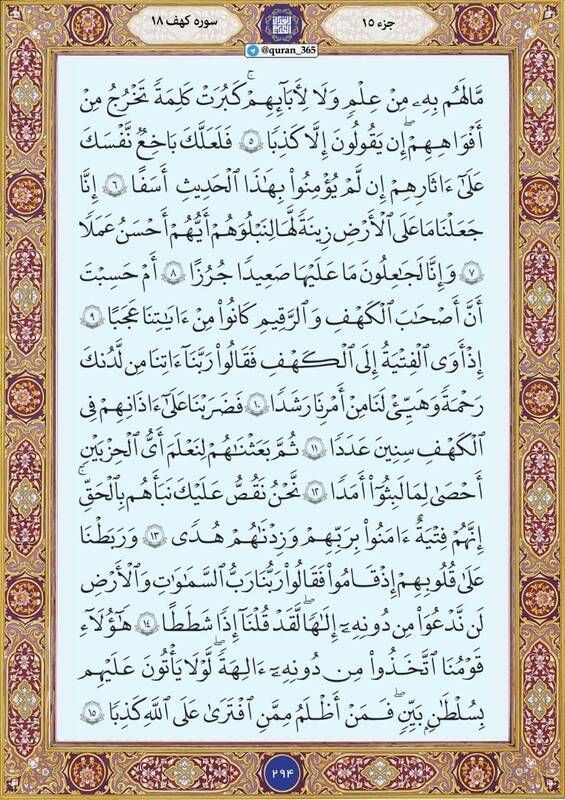 سوره کهف ۱۸
جزء ۱۵
@quran_365
مَّا لَهُم بِهِۦ مِنْ عِلْمٍ وَلَا لِأَبَآئِهِمْ ۚ كَبُرَتْ كَلِمَةً تَخْرُجُ مِنْ
أَفْوَاهِهِمْ ۖ إِن يَقُولُونَ إِلَّا كَذِبًا ۵ فَلَعَلَّكَ بَاخِعٌ نَّفْسَكَ
عَلَىٰٓ ءَاثَارِهِمْ إِن لَّمْ يُؤْمِنُوا۟ بِهَـٰذَا ٱلْحَدِيثِ أَسَفًا ۶ إِنَّا
جَعَلْنَا مَا عَلَى ٱلْأَرْضِ زِينَةً لَّهَا لِنَبْلُوَهُمْ أَيُّهُمْ أَحْسَنُ عَمَلًا
۷ وَإِنَّا لَجَـٰعِلُونَ مَا عَلَيْهَا صَعِيدًا جُرُزًا ۸ أَمْ حَسِبْتَ
أَنَّ أَصْحَـٰبَ ٱلْكَهْفِ وَٱلرَّقِيمِ كَانُوا۟ مِنْ ءَايَـٰتِنَا عَجَبًا ۹
إِذْ أَوَى ٱلْفِتْيَةُ إِلَى ٱلْكَهْفِ فَقَالُوا۟ رَبَّنَآ ءَاتِنَا مِن لَّدُنكَ
رَحْمَةً وَهَيِّئْ لَنَا مِنْ أَمْرِنَا رَشَدًا ۱۰ فَضَرَبْنَا عَلَىٰٓ ءَاذَانِهِمْ فِى
ٱلْكَهْفِ سِنِينَ عَدَدًا ۱۱ ثُمَّ بَعَثْنَـٰهُمْ لِنَعْلَمَ أَىُّ ٱلْحِزْبَيْنِ
أَحْصَىٰ لِمَا لَبِثُوٓا۟ أَمَدًا ۱۲ نَّحْنُ نَقُصُّ عَلَيْكَ نَبَأَهُم بِٱلْحَقِّ ۚ
إِنَّهُمْ فِتْيَةٌ ءَامَنُوا۟ بِرَبِّهِمْ وَزِدْنَـٰهُمْ هُدًى ۱۳ وَرَبَطْنَا
عَلَىٰ قُلُوبِهِمْ إِذْ قَامُوا۟ فَقَالُوا۟ رَبُّنَا رَبُّ ٱلسَّمَـٰوَٰتِ وَٱلْأَرْضِ
لَن نَّدْعُوَا۟ مِن دُونِهِۦٓ إِلَـٰهًا ۖ لَّقَدْ قُلْنَآ إِذًا شَطَطًا ۱۴ هَـٰٓؤُلَآءِ
قَوْمُنَا ٱتَّخَذُوا۟ مِن دُونِهِۦٓ ءَالِهَةً ۖ لَّوْلَا يَأْتُونَ عَلَيْهِم
بِسُلْطَـٰنٍۭ بَيِّنٍ ۖ فَمَنْ أَظْلَمُ مِمَّنِ ٱفْتَرَىٰ عَلَى ٱللَّهِ كَذِبًا ۱۵
۲۹۴